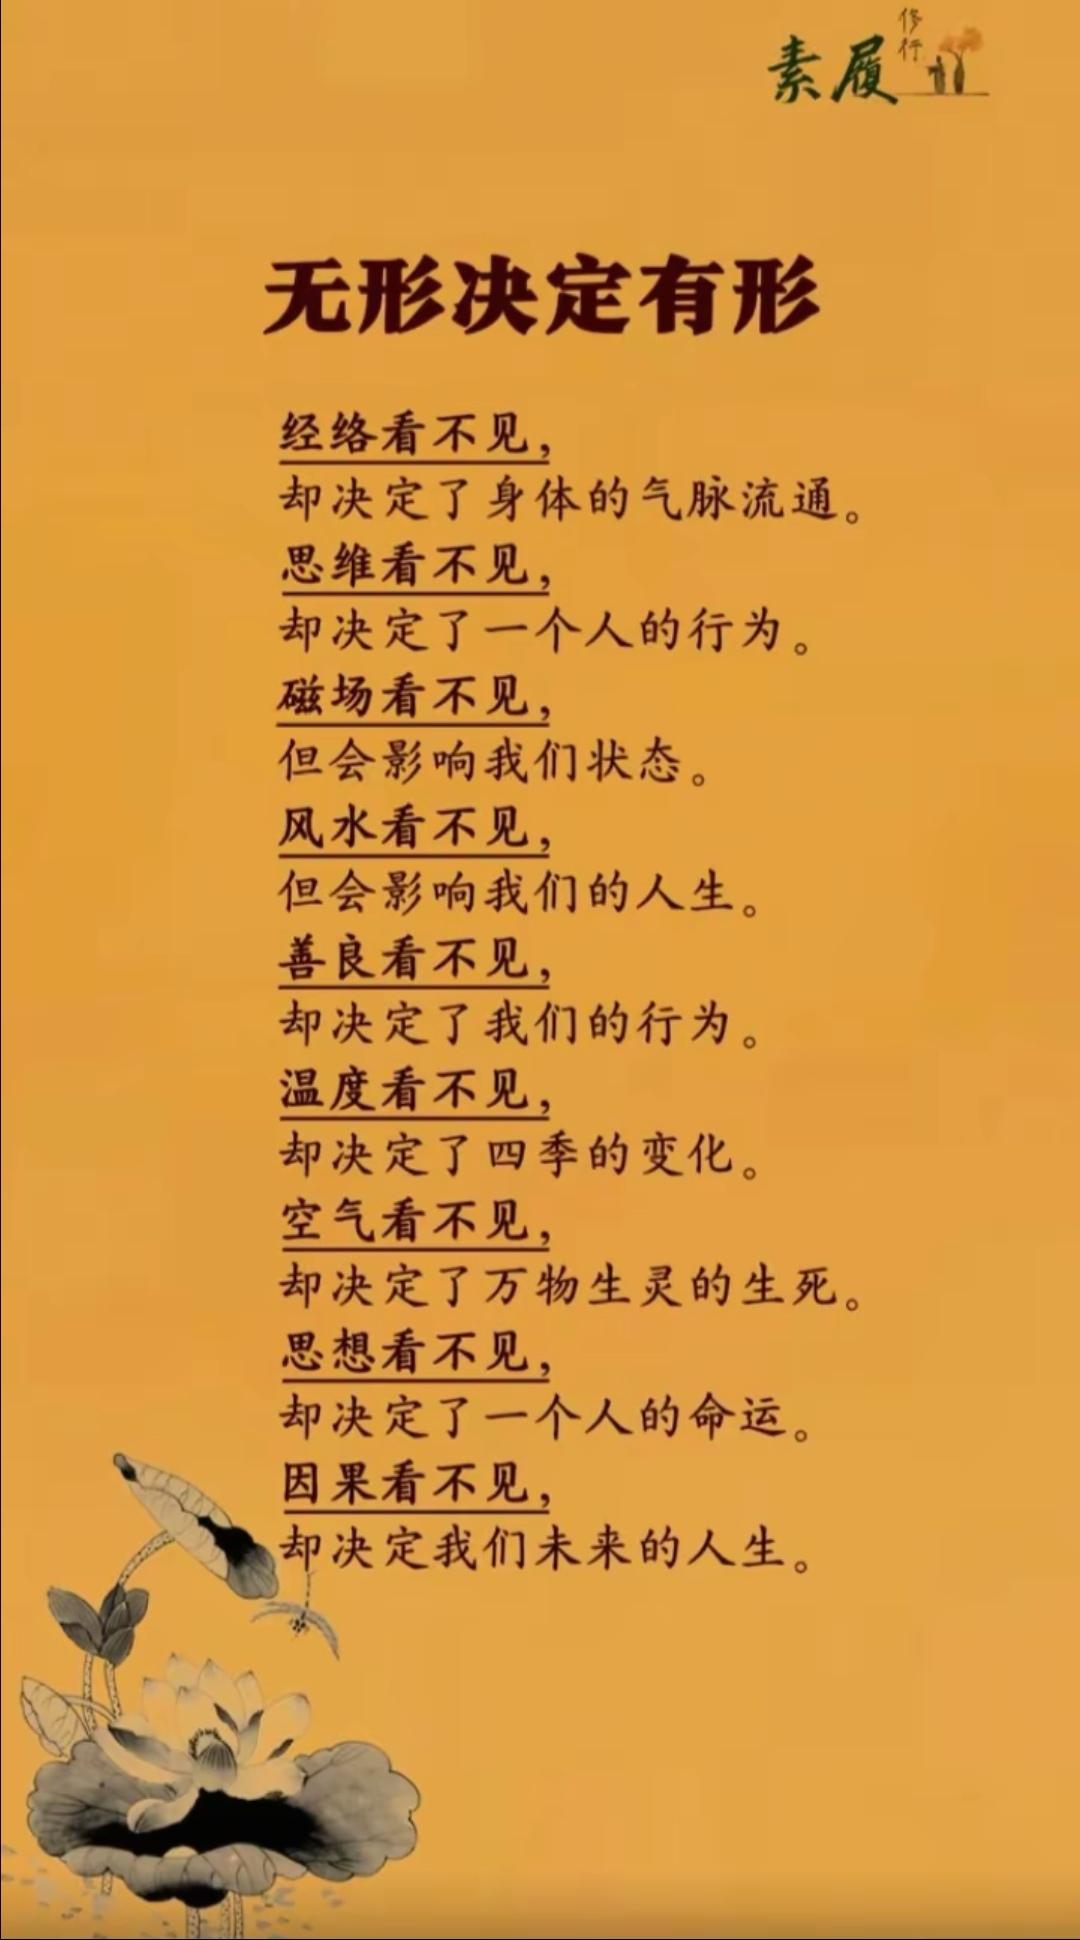 素履
修行
无形决定有形
经络看不见，
却决定了身体的气脉流通。
思维看不见，
却决定了一个人的行为。
磁场看不见，
但会影响我们状态。
风水看不见，
但会影响我们的人生。
善良看不见，
却决定了我们的行为。
温度看不见，
却决定了四季的变化。
空气看不见，
却决定了万物生灵的生死。
思想看不见，
却决定了一个人的命运。
因果看不见，
却决定我们未来的人生。